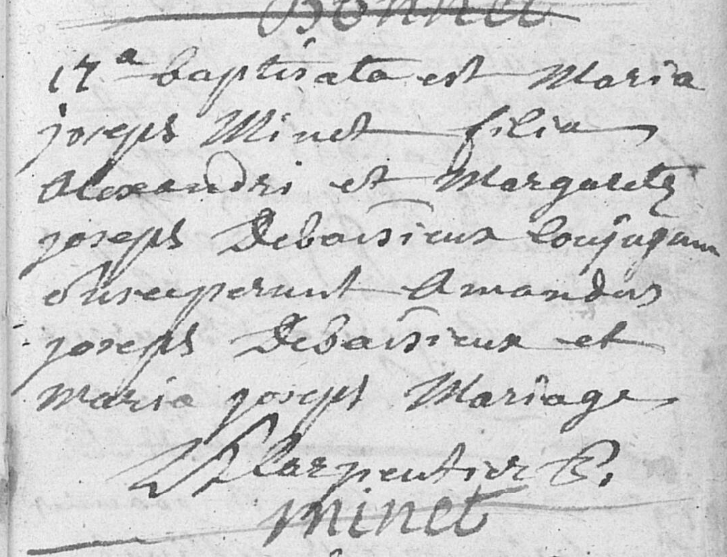 Bonnet
17ᵃ baptisata est Maria
joseph Minet filia
Alexandri et Margaretæ
joseph Debaisieux Conjugum
susceperunt Amandus
joseph Debaisieux et
Maria joseph Mariage
Carpentier P.
minet